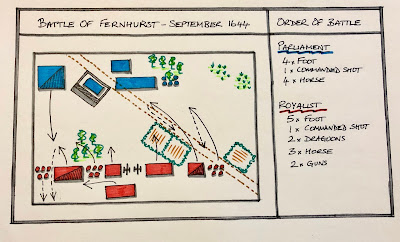 BATTLE OF FERNHURST - SEPTEMBER 1644
ORDER OF BATTLE
PARLIAMENT
4 x FOOT
1 x COMMANDED SHOT
4 x HORSE
ROYALIST
5 x FOOT
1 x COMMANDED SHOT
2 x DRAGOONS
3 x HORSE
2 x GUNS